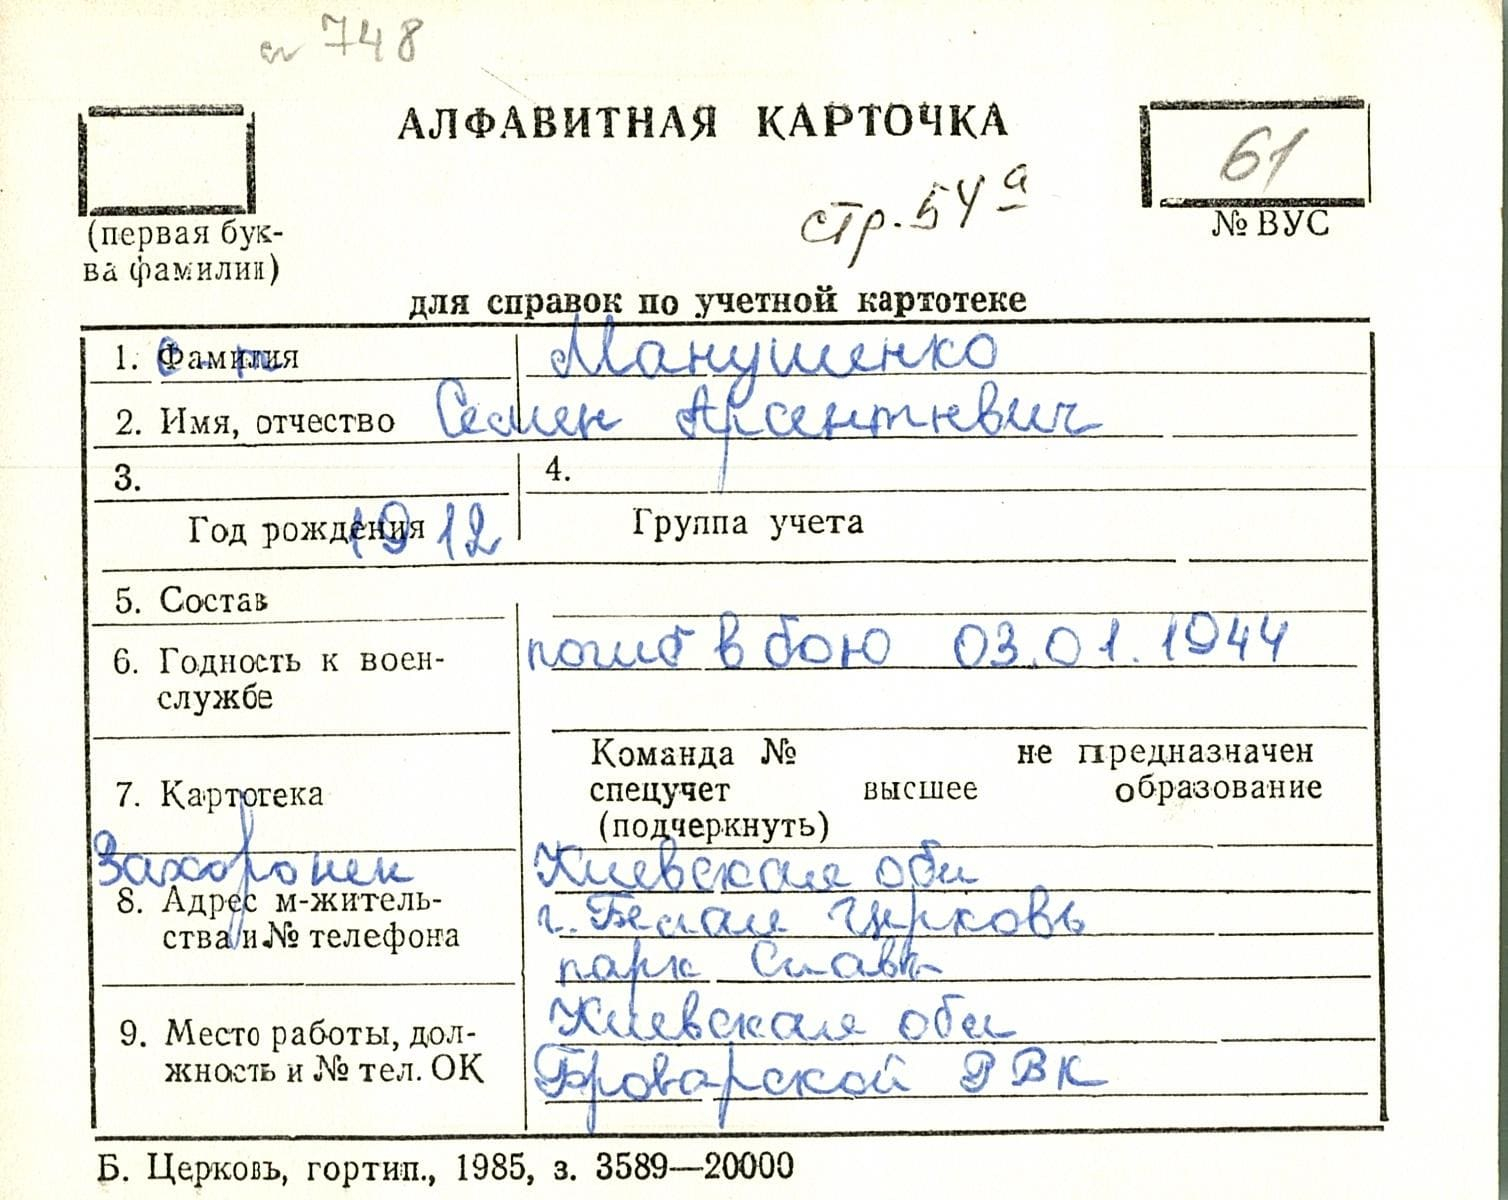 748
АЛФАВИТНАЯ КАРТОЧКА
61
стр. 54а
(первая бук-
ва фамилии)
№ ВУС
для справок по учетной картотеке
1. Фамилия с-т Манушенко
2. Имя, отчество Семен Арсентиевич
3. 4.
Год рождения 1912 Группа учета
5. Состав
6. Годность к воен-
службе
погиб в бою 03.01.1944
Команда № не предназначен
7. Картотека
спецучет высшее образование
(подчеркнуть)
Захоронен
8. Адрес м-житель-
ства и № телефона
Киевская обл
г. Белая Церковь
парк Славы
9. Место работы, дол-
жность и № тел. ОК
Киевская обл
Броварской РВК
Б. Церковь, гортип., 1985, з. 3589—20000